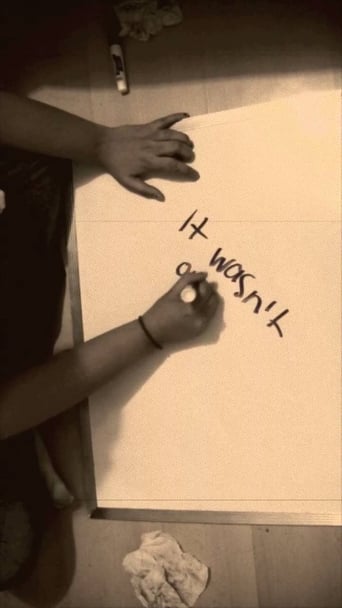 It wasn't
a